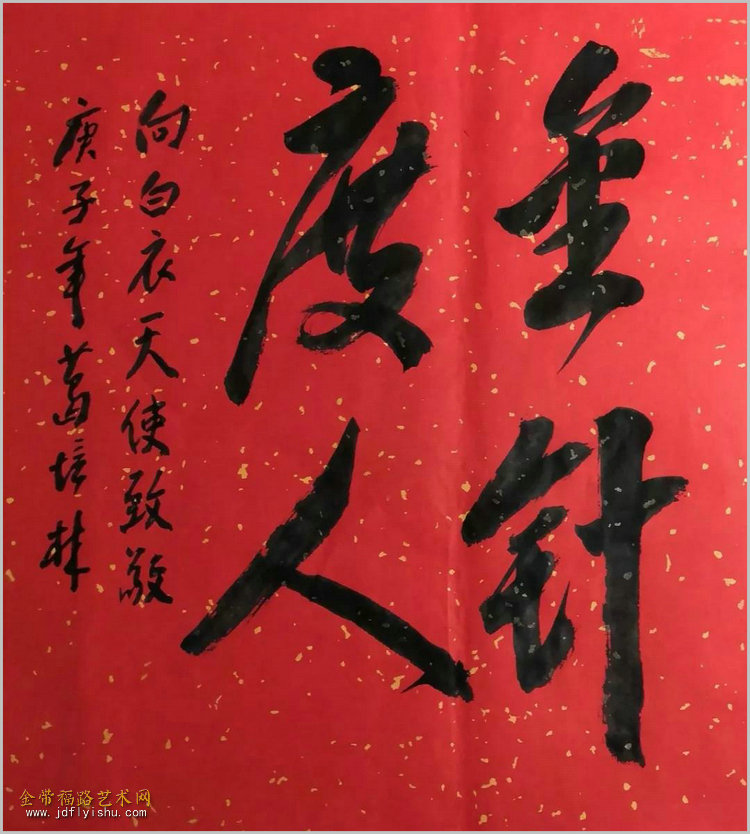 金针
度人
向白衣天使致敬
庚子年葛培林
金带福路艺术网
www.jdflyishu.com